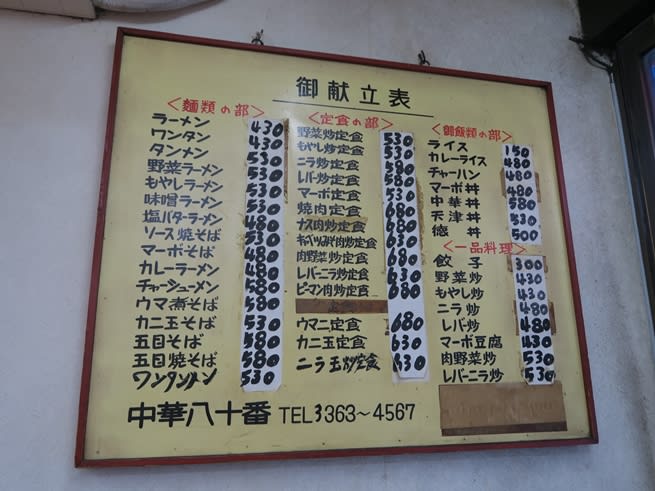 御献立表
<麺類の部>
ラーメン 430
ワンタン 430
タンメン 530
野菜ラーメン 530
もやしラーメン 530
味噌ラーメン 530
塩バターラーメン 480
ソース焼そば 530
マーボそば 480
カレーラーメン 480
チャーシューメン 580
ウマ煮そば 580
カニ玉そば 530
五目そば 580
五目焼そば 580
ワンタンメン 530
<定食の部>
野菜炒定食 530
もやし炒定食 530
ニラ炒定食 580
レバ炒定食 580
マーボ定食 530
焼肉定食 680
ナス肉炒定食 680
キャベツみそ肉炒定食 630
肉野菜炒定食 680
レバーニラ炒定食 630
ピーマン肉炒定食 680
定食
ウマニ定食 680
カニ玉定食 630
ニラ玉炒定食 630
<御飯類の部>
ライス 150
カレーライス 480
チャーハン 480
マーボ丼 480
中華丼 580
天津丼 530
徳丼 500
<一品料理>
餃子 300
野菜炒 430
もやし炒 430
ニラ炒 480
レバ炒 480
マーボ豆腐 430
肉野菜炒 530
レバーニラ炒 530
中華八十番 TEL3363〜4567